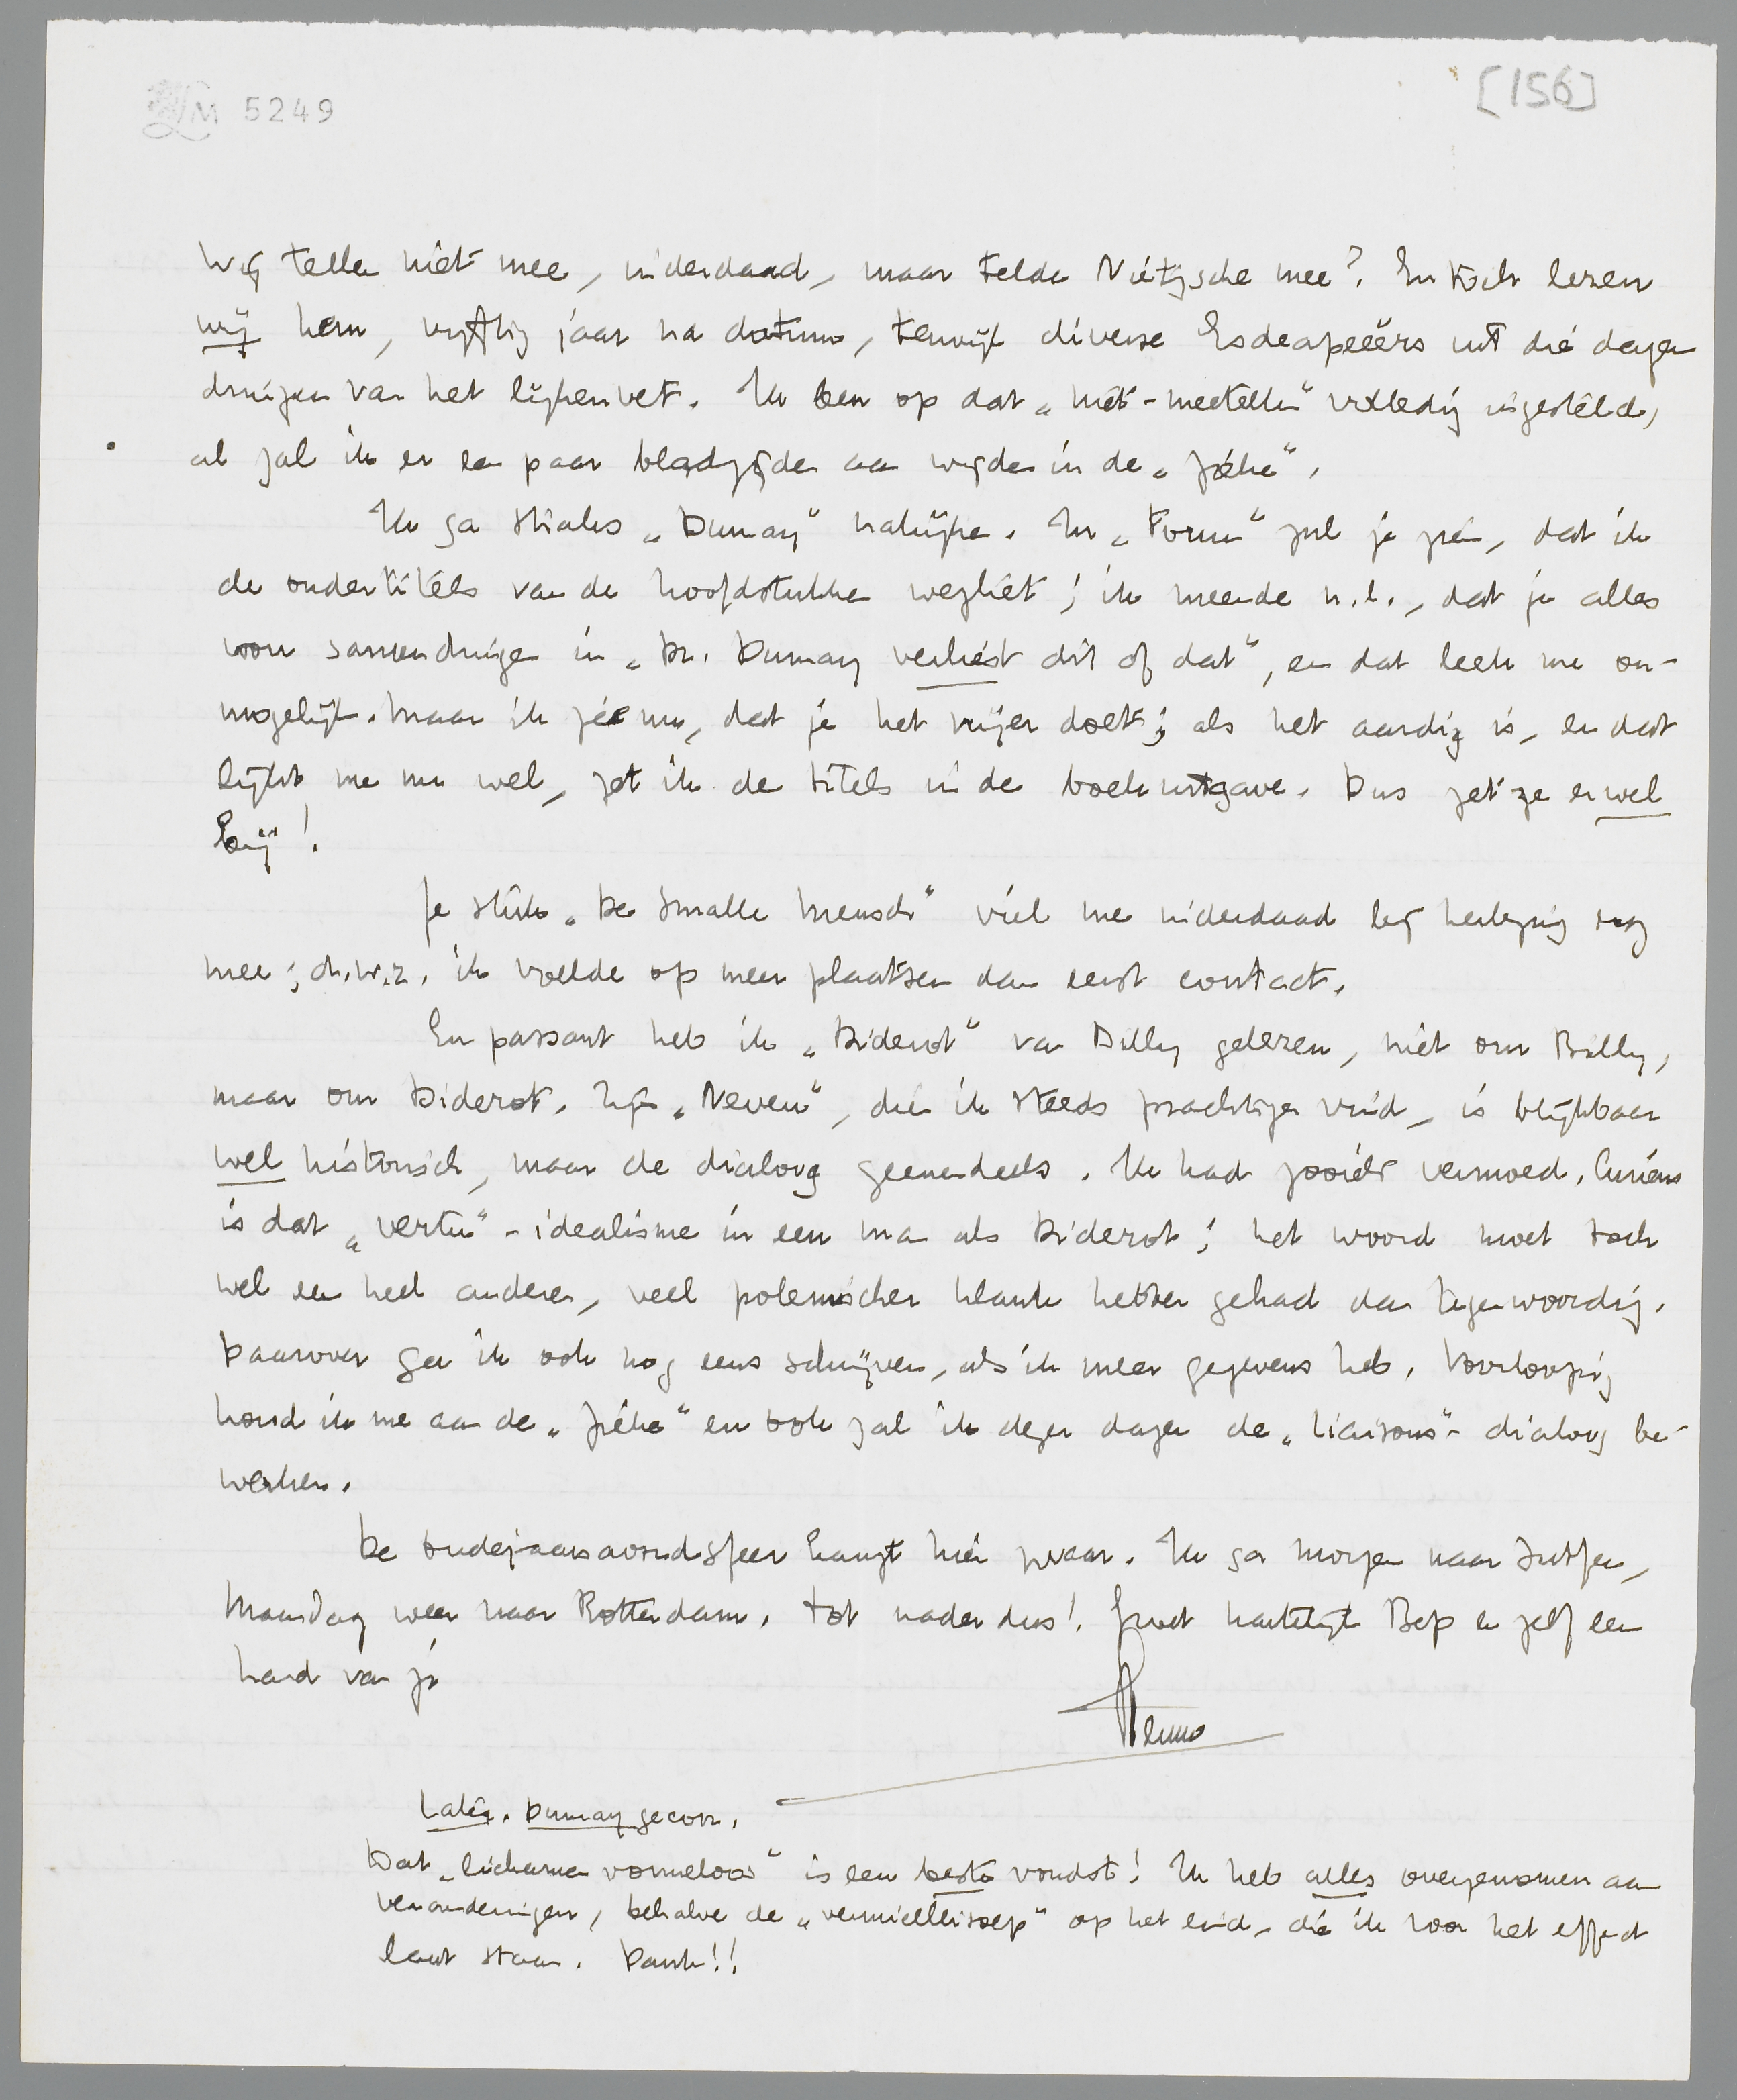 LM 5249
[156]
Wij tellen niet mee, inderdaad, maar telde Nietzsche mee? En toch lezen
wij hem, vijftig jaar na datum, terwijl diverse Esdeapeeërs uit die dagen
druipen van het lijkenvet. Ik ben op dat „niet-meetellen" volledig ingesteld,
al zal ik er een paar bladzijden aan wijden in de „Ziekte".
Ik ga straks „Dumay" nakijken. In „Forum" zul je zien, dat ik
de ondertitels van de hoofdstukken wegliet; ik meende n.l., dat je alles
wou samendringen in „Dr. Dumay verliest dit of dat", en dat leek me on-
mogelijk. Maar ik zie nu, dat je het vrijer doet; als het aardig is, en dat
lijkt me nu wel, zet ik de titels in de boekuitgave. Dus zet ze er wel
bij!
Je stuk „De Smalle Mensch" viel me inderdaad bij herlezing nog
mee; d.w.z. ik voelde op meer plaatsen dan eerst contact.
En passant heb ik „Diderot" van Billy gelezen, niet om Billy,
maar om Diderot. Zijn „Neveu", die ik steeds prachtiger vind, is blijkbaar
wel historisch, maar de dialoog geenendeels. Ik had zooiets vermoed. Curieus
is dat „vertu"-idealisme in een man als Diderot; het woord moet toch
wel een heel andere, veel polemischer klank hebben gehad dan tegenwoordig.
Daarover ga ik ook nog eens schrijven, als ik meer gegevens heb. Voorloopig
houd ik me aan de „Ziekte" en ook zal ik dezer dagen de „Liaisons"-dialoog be-
werken.
De oudejaarsavondsfeer hangt hier zwaar. Ik ga morgen naar Zutfen,
Maandag weer naar Rotterdam. Tot nader dus! Groet hartelijk Bep en zelf een
hand van je
Menno
Later. Dumay gecorr.
Dat „lichamen vormeloos" is een beste vondst! Ik heb alles overgenomen aan
veranderingen, behalve de „vermicellisoep" op het eind, die ik voor het effect
laat staan. Dank!!